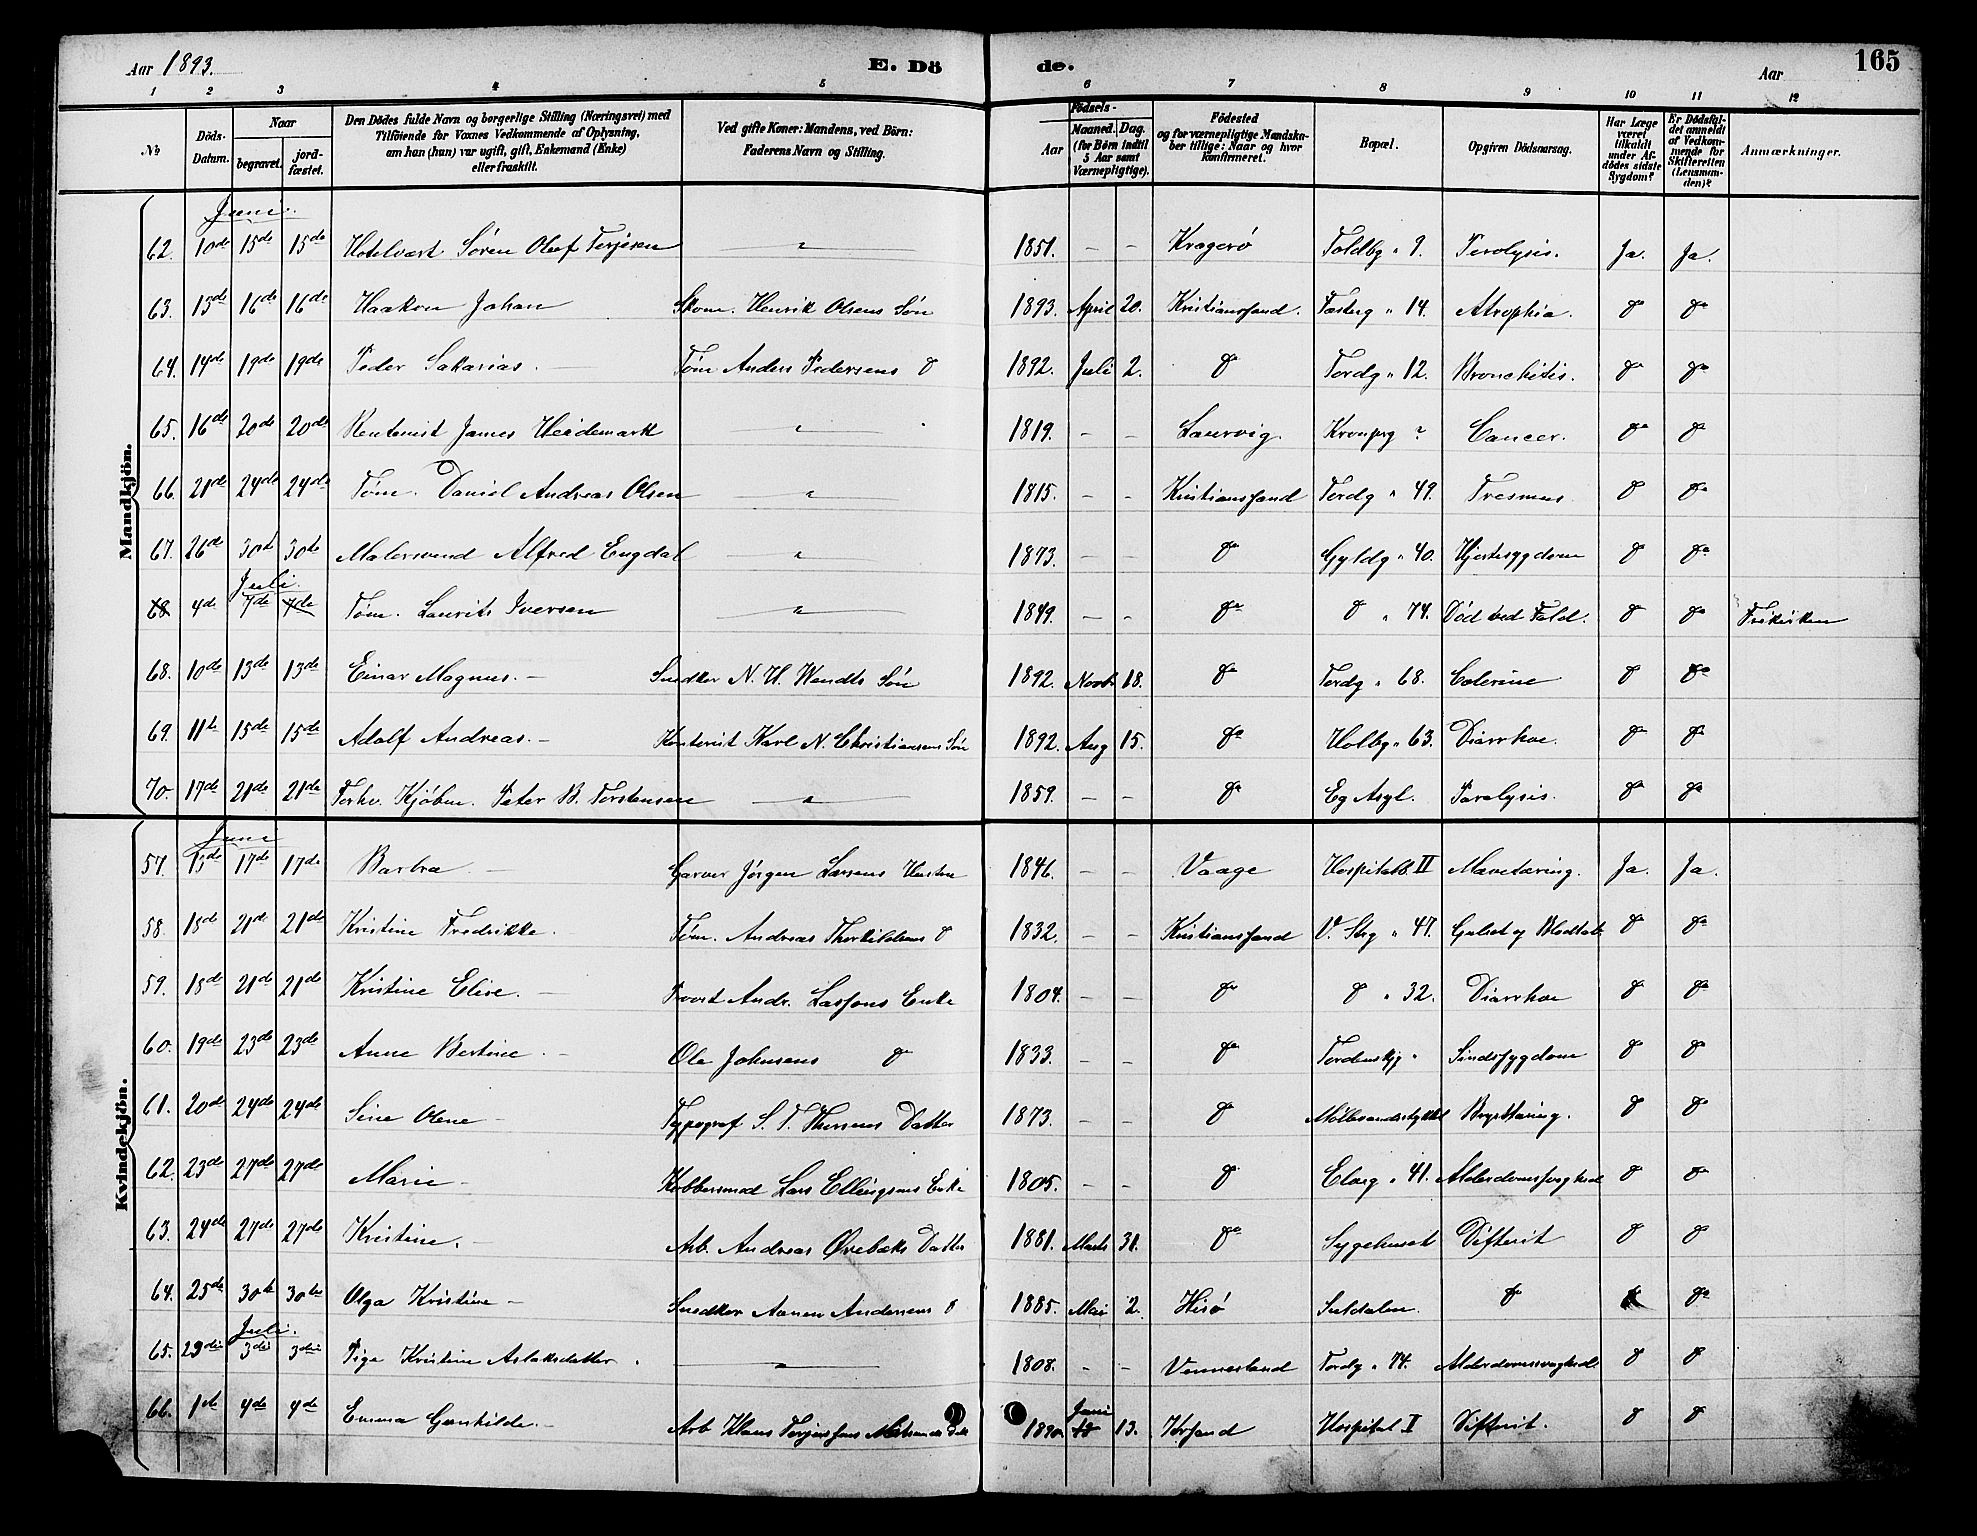 Aar 1893. E. Dö de. Aar 165
1 2 3 4 5 6 7 8 9 10 11 12
№ Döds-Datum. Naar begravet. jordfæstet. Den Dödes fulde Navn og borgerlige Stilling (Næringsvei) med Tilföiende for Voxnes Vedkommende af Oplysning, om han (hun) var ugift, gift, Enkemand (Enke) eller fraskilt. Ved gifte Koner: Mandens, ved Börn: Faderens Navn og Stilling. Födsels- Aar Maaned. Dag. (for Börn indtil 5 Aar samt Værnepligtige). Födested og for værnepligtige Mandskaber tillige: Naar og hvor konfirmeret. Bopæl. Opgiven Dödsaarsag. Har Læge været tilkaldt under Afdödes sidste Sygdom? Er Dödsfaldet anmeldt af Vedkommende for Skifteretten (Lensmanden)? Anmærkninger.
Mandkjön.
Juni.
62. 10de 15de 15de Hotelvært Sören Oluf Terjesen " 1851. – – Kragerø Toldbg " 9. Paralysis. Ja. Ja.
63. 13de 16de 16de Haakon Johan Skom. Henrik Olsens Søn 1893. April 20. Kristianssand. Fæstng " 14. Atrophia. do do
64. 14de 19de 19de Peder Sakarias. – Tøm Anders Pedersens do 1892. Juli 2. do Tordg " 12. Bronchitis. do do
65. 16de 20de 20de Rentenist James Heidemark " 1819. – – Laurvig. Kronprg ? Cancer. do do
66. 21de 24de 24de Tøm. Daniel Andreas Olsen " 1815. – – Kristianssand Tordg " 49. do do
67. 26de 30te 30te Malersvend Alfred Engdal " 1873. – – do Gyldg " 40. Hjertesygdom do do
Juli.
68 4de 7de 7de Tøm. Laurits Iversen " 1849. – – do do " 74. Død ved Fald. do do Frikirken
68. 10de 13de 13de Einar Magnus. – Snedker N. H. Wendts Søn 1892. Novbr 18. do Tordg " 68. Colerine do do
69. 11te 15de 15de Adolf Andreas. – Kontorist Karl N. Christiansens Søn 1892. Aug 15. do Holbg " 63. Diarrhoe. do do
70. 17de 21de 21de Forhv. Kjøbm. Peter B. Torstensen " 1859. – – do Eg Asyl. Paralysis. do do
Kvindekjön.
Juni
57. 13de 17de 17de Barbra – Garver Jørgen Larsens Hustru 1846. – – Vaage Hospitalet II Mavetæring. Ja. Ja.
58. 18de 21de 21de Kristine Fredrikke. Tøm. Andreas Thorkildsens do 1832. – – Kristianssand V. Stg " 47. Gulsot og Blodtab do do
59. 18de 21de 21de Kristine Elise. – Andr. Lassons Enke 1804. – – do do " 32. Diarrhoe do do
60. 19de 23de 23de Anne Bertine. – Ole Johnsens do 1833. – – do Tordenskg " Sindssygdom do do
61. 20de 24de 24de Sine Olene – Typograf S. T. Thorsens Datter 1873. – – do Møllevandsstykket Brysttæring. do do
62. 23de 27de 27de Marie – Kobbersmed Lars Ellingsens Enke 1805. – – do Elveg " 41. Alderdomssvaghed do do
63. 24de 27de 27de Kristine. – Arb. Andreas Øvebæks Datter 1881. Marts 31. do Sygehuset Difterit do do
64. 25de 30te 30te Olga Kristine – Snedker Aanen Andersens do 1885. Mai 2. Hisø Suldalen. do do
Juli.
65. 29de 3die 3die Pige Kristine Aslaksdatter. " 1808. – – Vennesland Tordg " 74. Alderdomssvaghed do do
66. 1ste 4de 4de Emma Gunhilde. – Arb Klaus Terjessens Datt 1890. Juni 13. Krsand Hospital I Difterit. do do